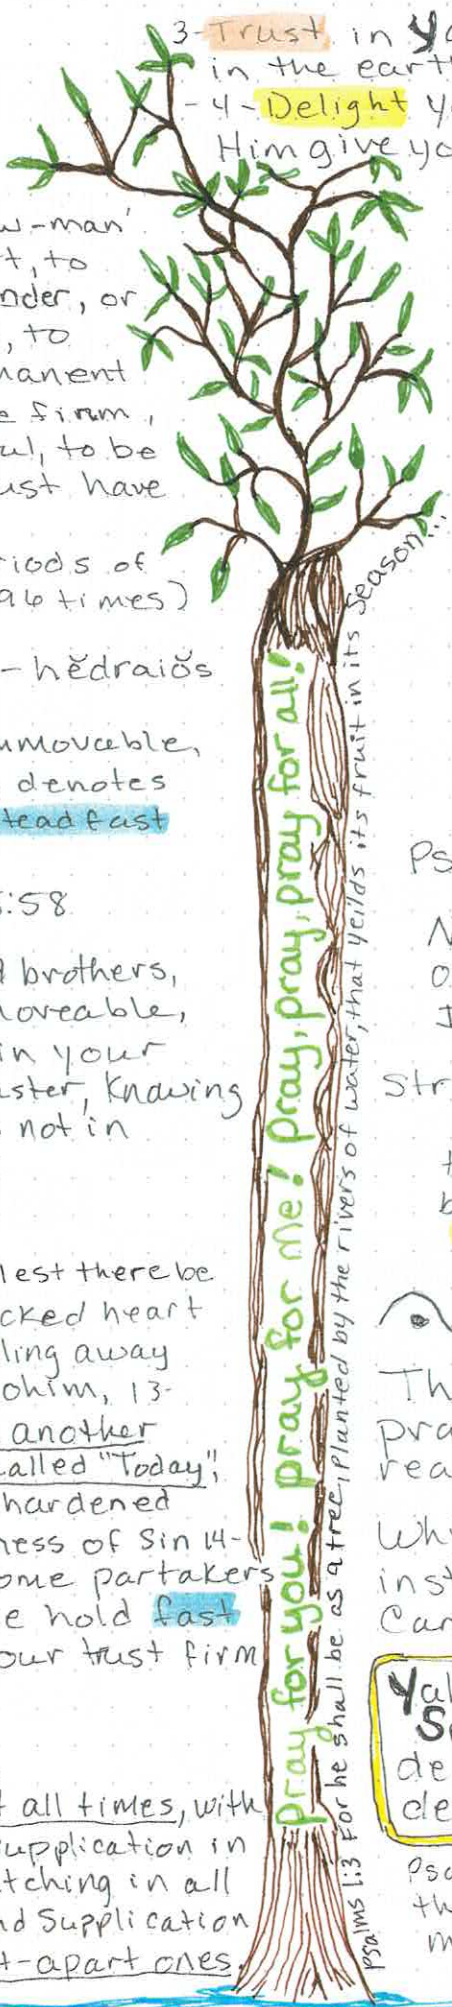 3-Trust in Ya
in the eart
-4-Delight y
Him give yo
w-man'
t, to
nder, or
, to
manent
e firm,
ul, to be
ust have
riods of
96 times)
- hĕdraiŏs
mmovable,
denotes
teadfast
:58
d brothers,
moveable,
in your
aster, knowing
not in
lest there be
cked heart
ling away
ohim, 13-
another
called "Today",
hardened
ness of Sin 14-
ome partakers
e hold fast
our trust firm
t all times, with
upplication in
tching in all
nd Supplication
t-apart ones.
pray for you! pray for me! pray, pray, pray for all!
Psalms 1:3 For he shall be as a tree, planted by the rivers of water, that yeilds its fruit in its season...
Ps
N
O
I
Str
t
b
Th
pra
rea
Why
inst
Can
Yal
Sp
de
de
Psa
th
m